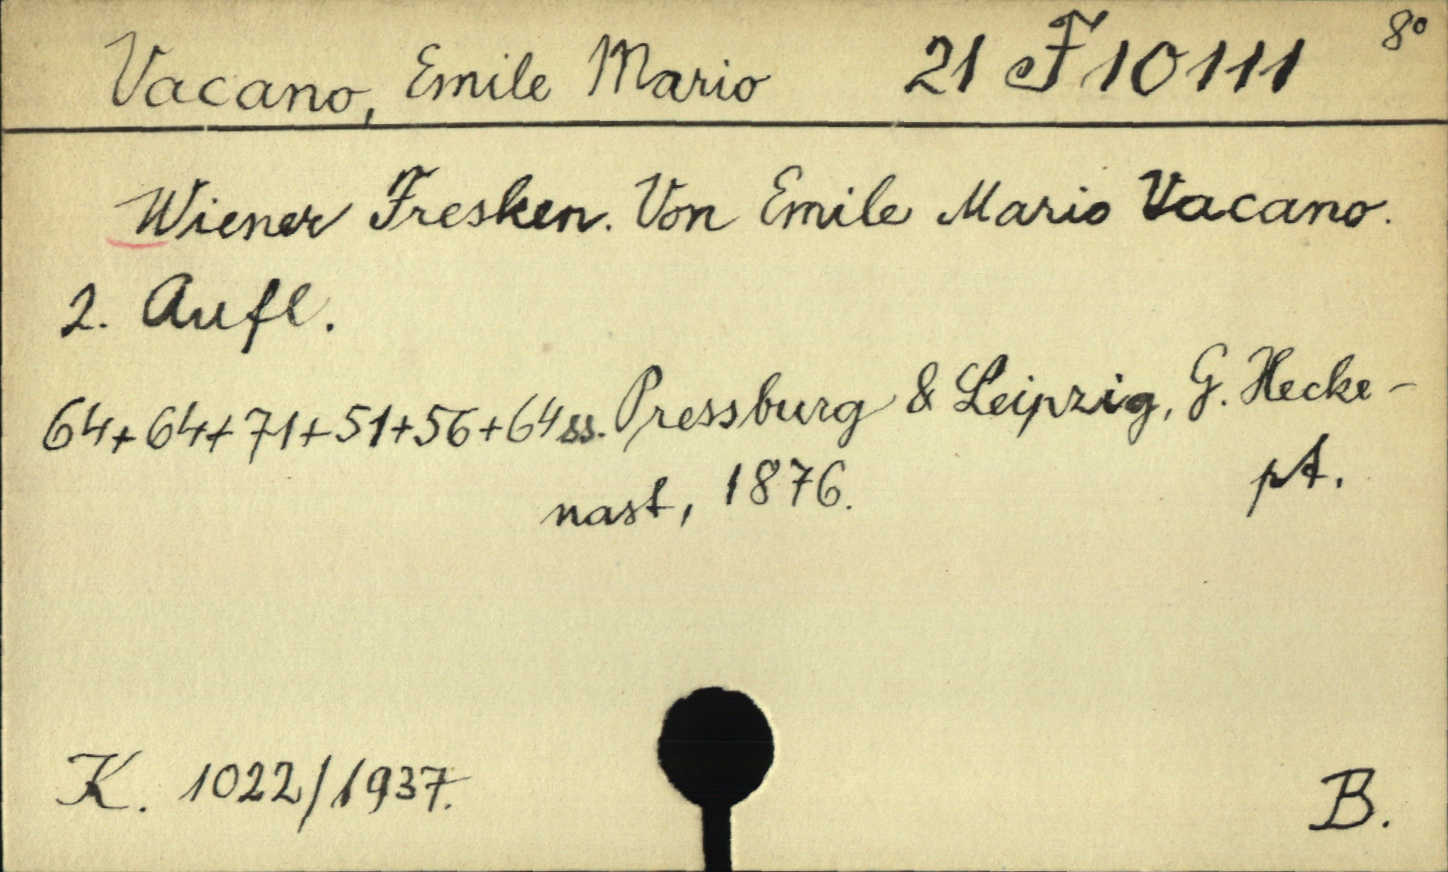 Vacano, Emile Mario 21 F 10111 8°
Wiener Fresken. Von Emile Mario Vacano.
2. Aufl.
64+64+71+51+56+64 ss. Pressburg & Leipzig, G. Hecke-
nast, 1876. pt.
K. 1022/1937. B.